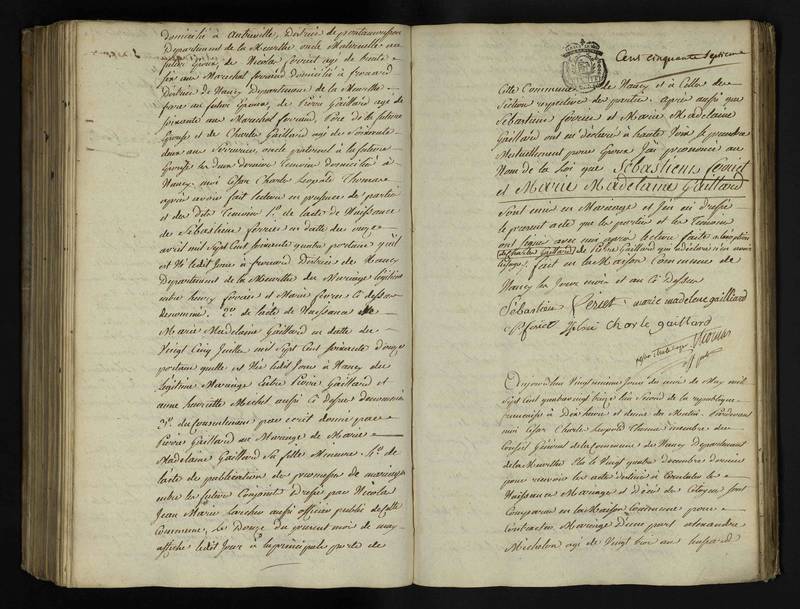 domicilié à Autreville, District de pontamousson
Departement de la Meurthe oncle Maternelle au
futur Epoux, de Nicolas ferriet agé de trente
six ans Marechal ferrand domicilié à frouard
District de Nancy departement de la Meurthe
frere au futur Epoux, de Pierre Gaillard agé de
soixante ans Marechal ferrand, Pere de la future
Epouse et de Charles Gaillard agé de soixante
deux ans Serrurier, oncle paternel à la future
Epouse les deux derniers temoins domiciliés à
Nancy. moi Charles Leopold Thomas
après avoir fait lecture en presence des parties
et des dits temoins 1º. de l'acte de Naissance
de Sébastien ferriet en datte du onze
avril mil sept Cent soixante quatre portant qu'il
est Né ledit Jour à frouard District de Nancy
Departement de la Meurthe du Mariage légitime
entre henry ferriet et Marie ci dessus
denommé. 2º. de l'acte de Naissance de
Marie Madelaine Gaillard en datte du
Vingt Cinq Juillet mil sept Cent soixante douze
portant quelle est Née ledit Jour à Nancy du
légitime Mariage Entre Pierre Gaillard et
anne henriette Michel aussi ci dessus denommés
3º. du Consentement par ecrit donné par
Pierre Gaillard au Mariage de Marie
Madelaine Gaillard sa fille Mineure. 4º. de
l'acte de publication de promesse de mariage
entre les futurs Conjoints dressé par Nicolas
Jean Marie aussi officier public de cette
Commune, le Douze du courant mois de may
affiché ledit Jour à la principale porte de
Cent cinquante Septieme
Cette Commune de Nancy et à Celles des
Section respective des parties. Après aussi que
Sébastien ferriet et Marie Madelaine
Gaillard ont eu déclaré à haute Voix se prendre
Mutuellement pour Epoux J'ai prononcé au
Nom de la Loi que Sébastien ferriet
et Marie Madelaine Gaillard
sont unis en Mariage et J'ai dressé
le present acte que les parties et les temoins
ont signé avec moi après lecture faite a l'exception
de Pierre Gaillard qui a declaré n'en avoir
l'usage. fait en la Maison Commune de
Nancy les Jour mois et an Ci Dessus
Sébastien Ferriet marie madeleine gailliard
N feriet charle gaillard
Thomas
Aujourd'hui Vingt neuvieme Jour du mois de May mil
sept Cent quatre vingt treize l'an Second de la republique
francaise à Dix heures et demie du Matin. Pardevant
moi Charles Leopold Thomas membre du
Conseil General de la Commune de Nancy Departement
de la Meurthe Elu le Vingt quatre decembre dernier
pour recevoir les actes destinés à Constater les
Naissances Mariage et Décès des Citoyens sont
Comparus en la Maison Commune pour
Contracter Mariage d'une part alexandre
Michelon agé de Vingt trois ans